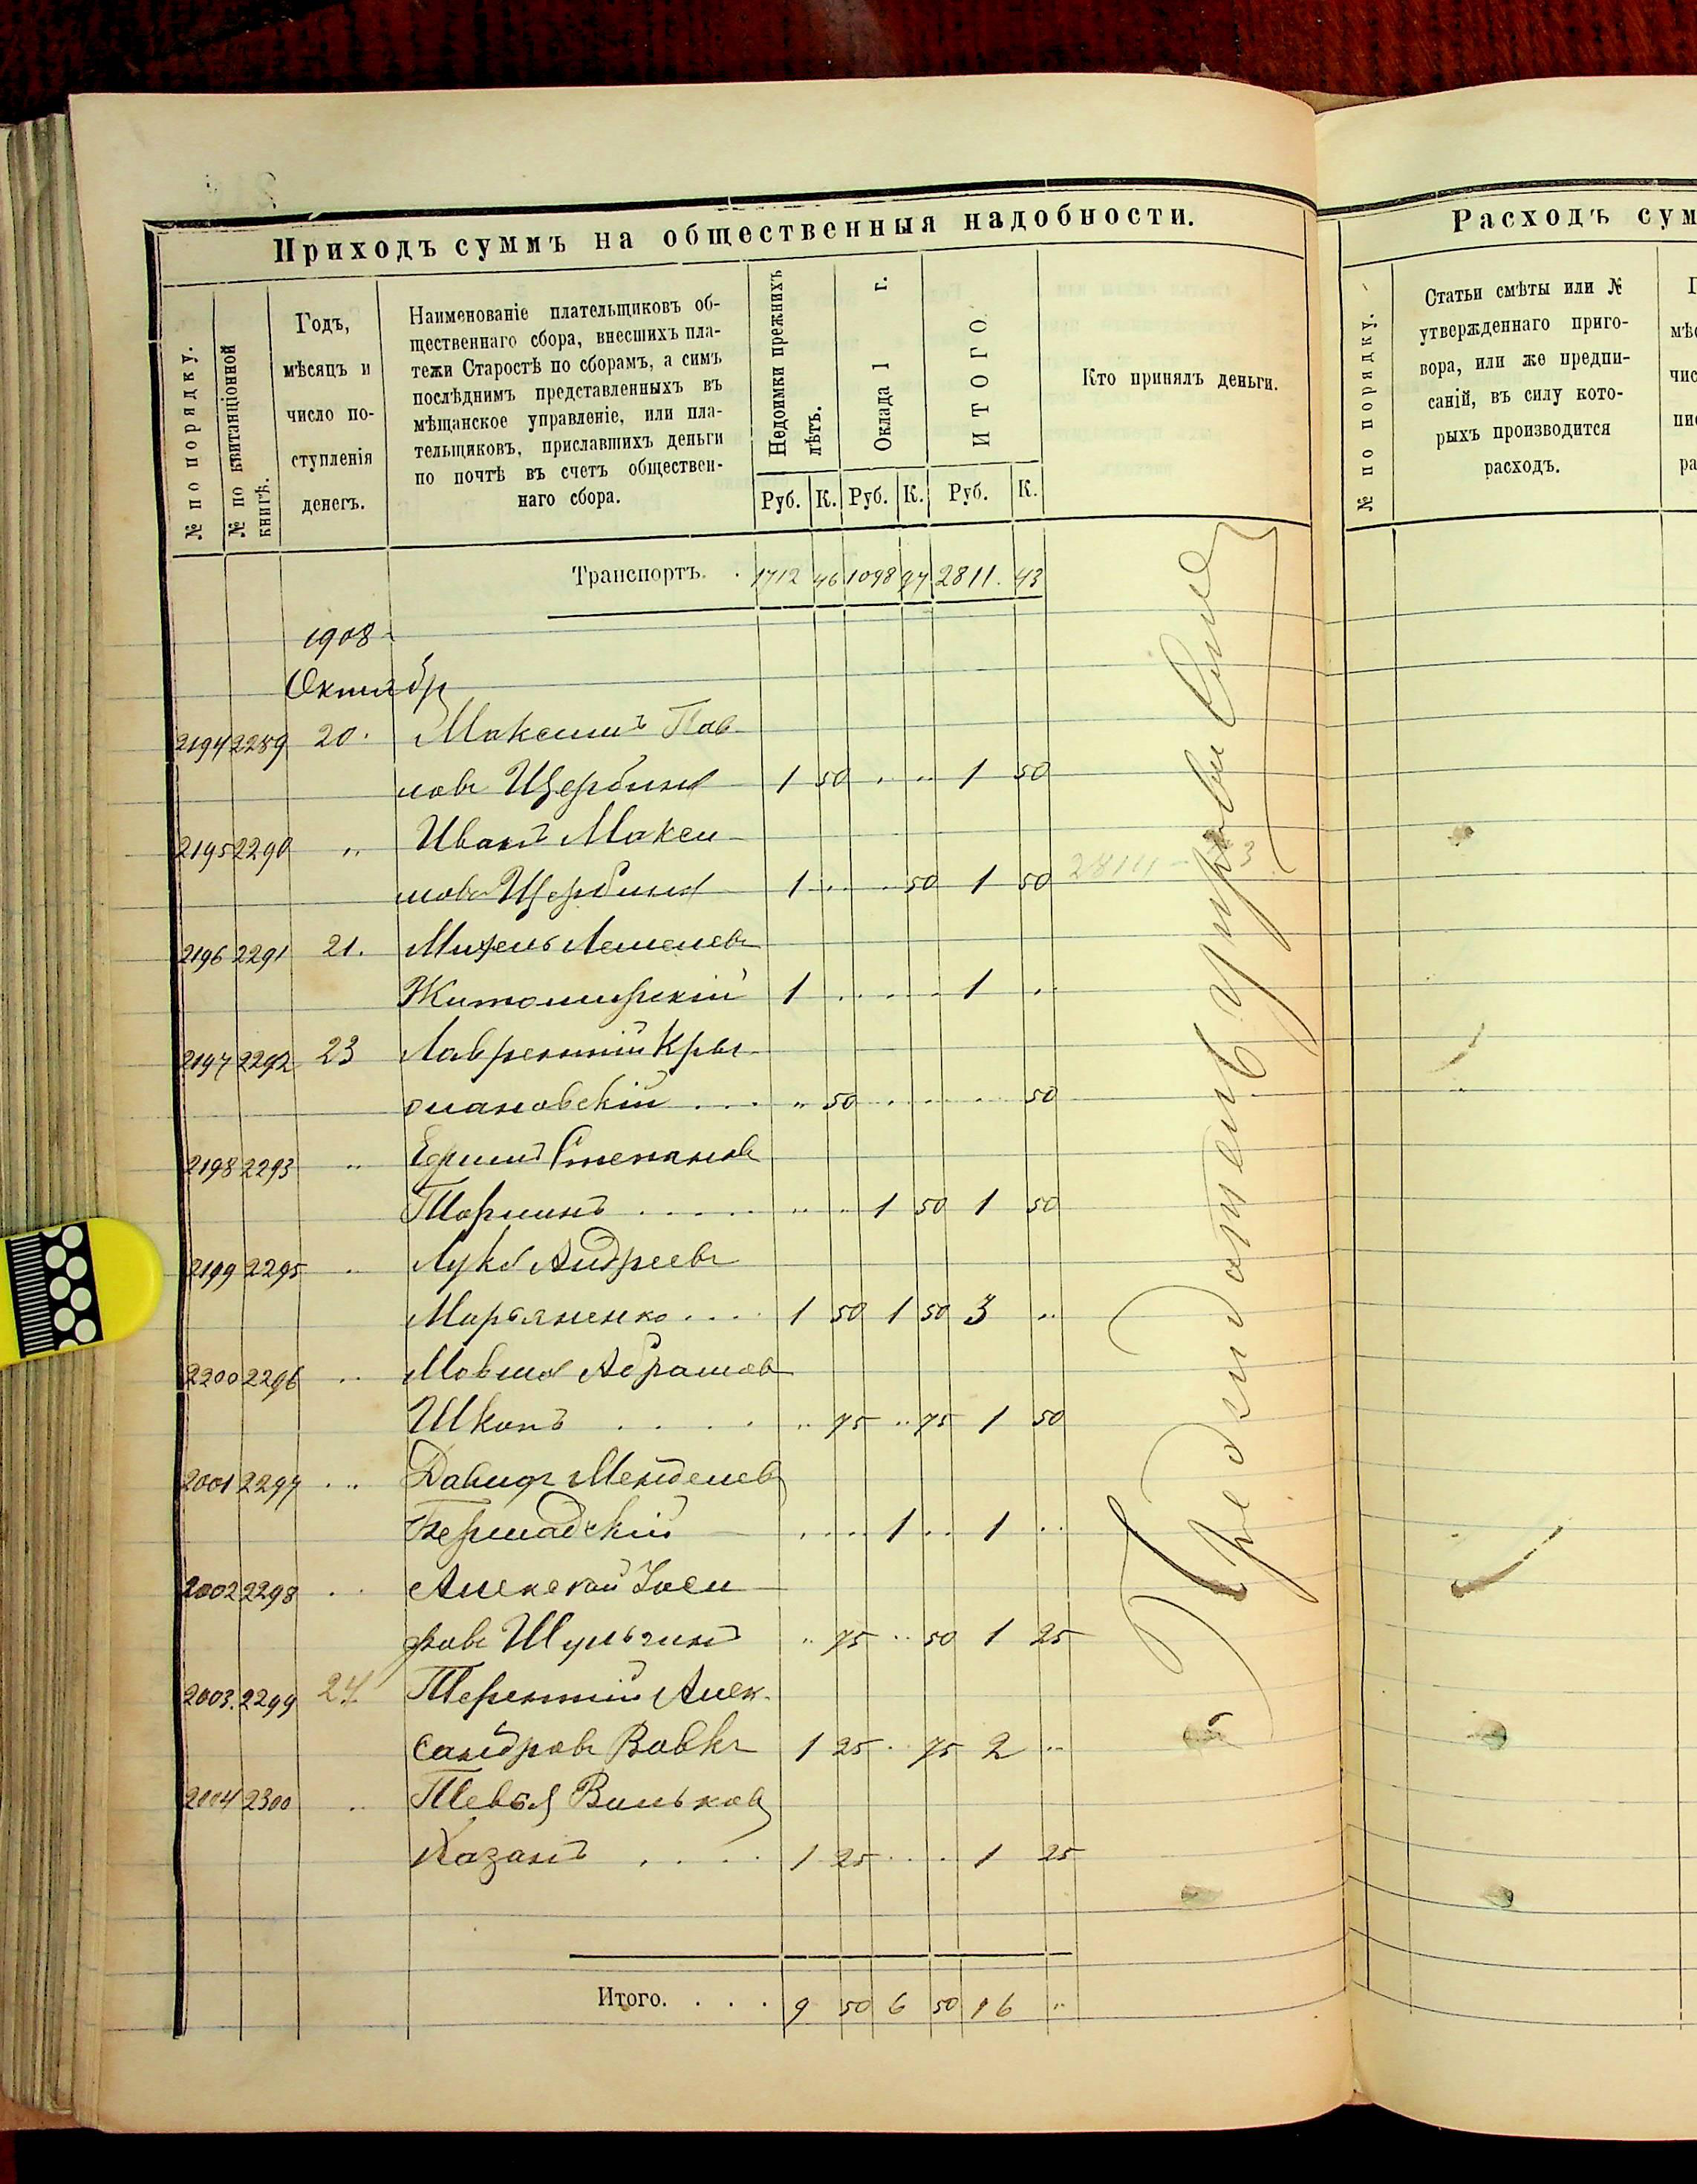 Приходъ суммъ на общественныя надобности.
№ по порядку.
№ по квитанціонной книгѣ.
Годъ,
мѣсяцъ и
число по-
ступленія
денегъ.
Наименованіе плательщиковъ об-
щественнаго сбора, внесшихъ пла-
тежи Старостѣ по сборамъ, а симъ
послѣднимъ представленныхъ въ
мѣщанское управленіе, или пла-
тельщиковъ, приславшихъ деньги
по почтѣ въ счетъ обществен-
наго сбора.
Недоимки прежнихъ лѣтъ.
Оклада 1 г.
ИТОГО
Руб. К. Руб. К. Руб. К.
Кто принялъ деньги.
Транспортъ. . 1712 46 1098 97 2811. 43
1908
Октябр
2194 2289 20. Максимъ Пав-
ловъ Щербина 1 50 . .. 1 50
2195 2290 „ Иванъ Макси-
мовъ Щербина 1 . . . 50 1 50
2814 - 73
2196 2291 21. Михель
Житомирскій 1 . . . . 1 ..
2197 2292 23 Лаврентій Кры-
жановскій . . . „ 50 . . . . 50
2198 2293 „ Ефимъ Степановъ
. . . . . .. . 1 50 1 50
2199 2295 .. Лука Андреевъ
Марьяненко . . . 1 50 1 50 3 ..
2200 2296 .. Мовша Абрамовъ
. . . . .. 75 .. 75 1 50
2001 2297 . .. Давидъ Менделевъ
Бершадскій . . . . 1 .. 1 ..
2002 2298 . . Алексѣй Іоси-
фовъ Шульгинъ .. 75 .. 50 1 25
2003. 2299 24 Терентій Алек-
сандровъ Вовкъ 1 25 . 75 2 ..
2004 2300 .. Тевья Вольковъ
Казанъ . . . . 1 25 . . . 1 25
Итого. . . . 9 50 6 50 16 „
Предсѣдатель управы
Расходъ сум
№ по порядку.
Статьи смѣты или №
утвержденнаго приго-
вора, или же предпи-
саній, въ силу кото-
рыхъ производится
расходъ.